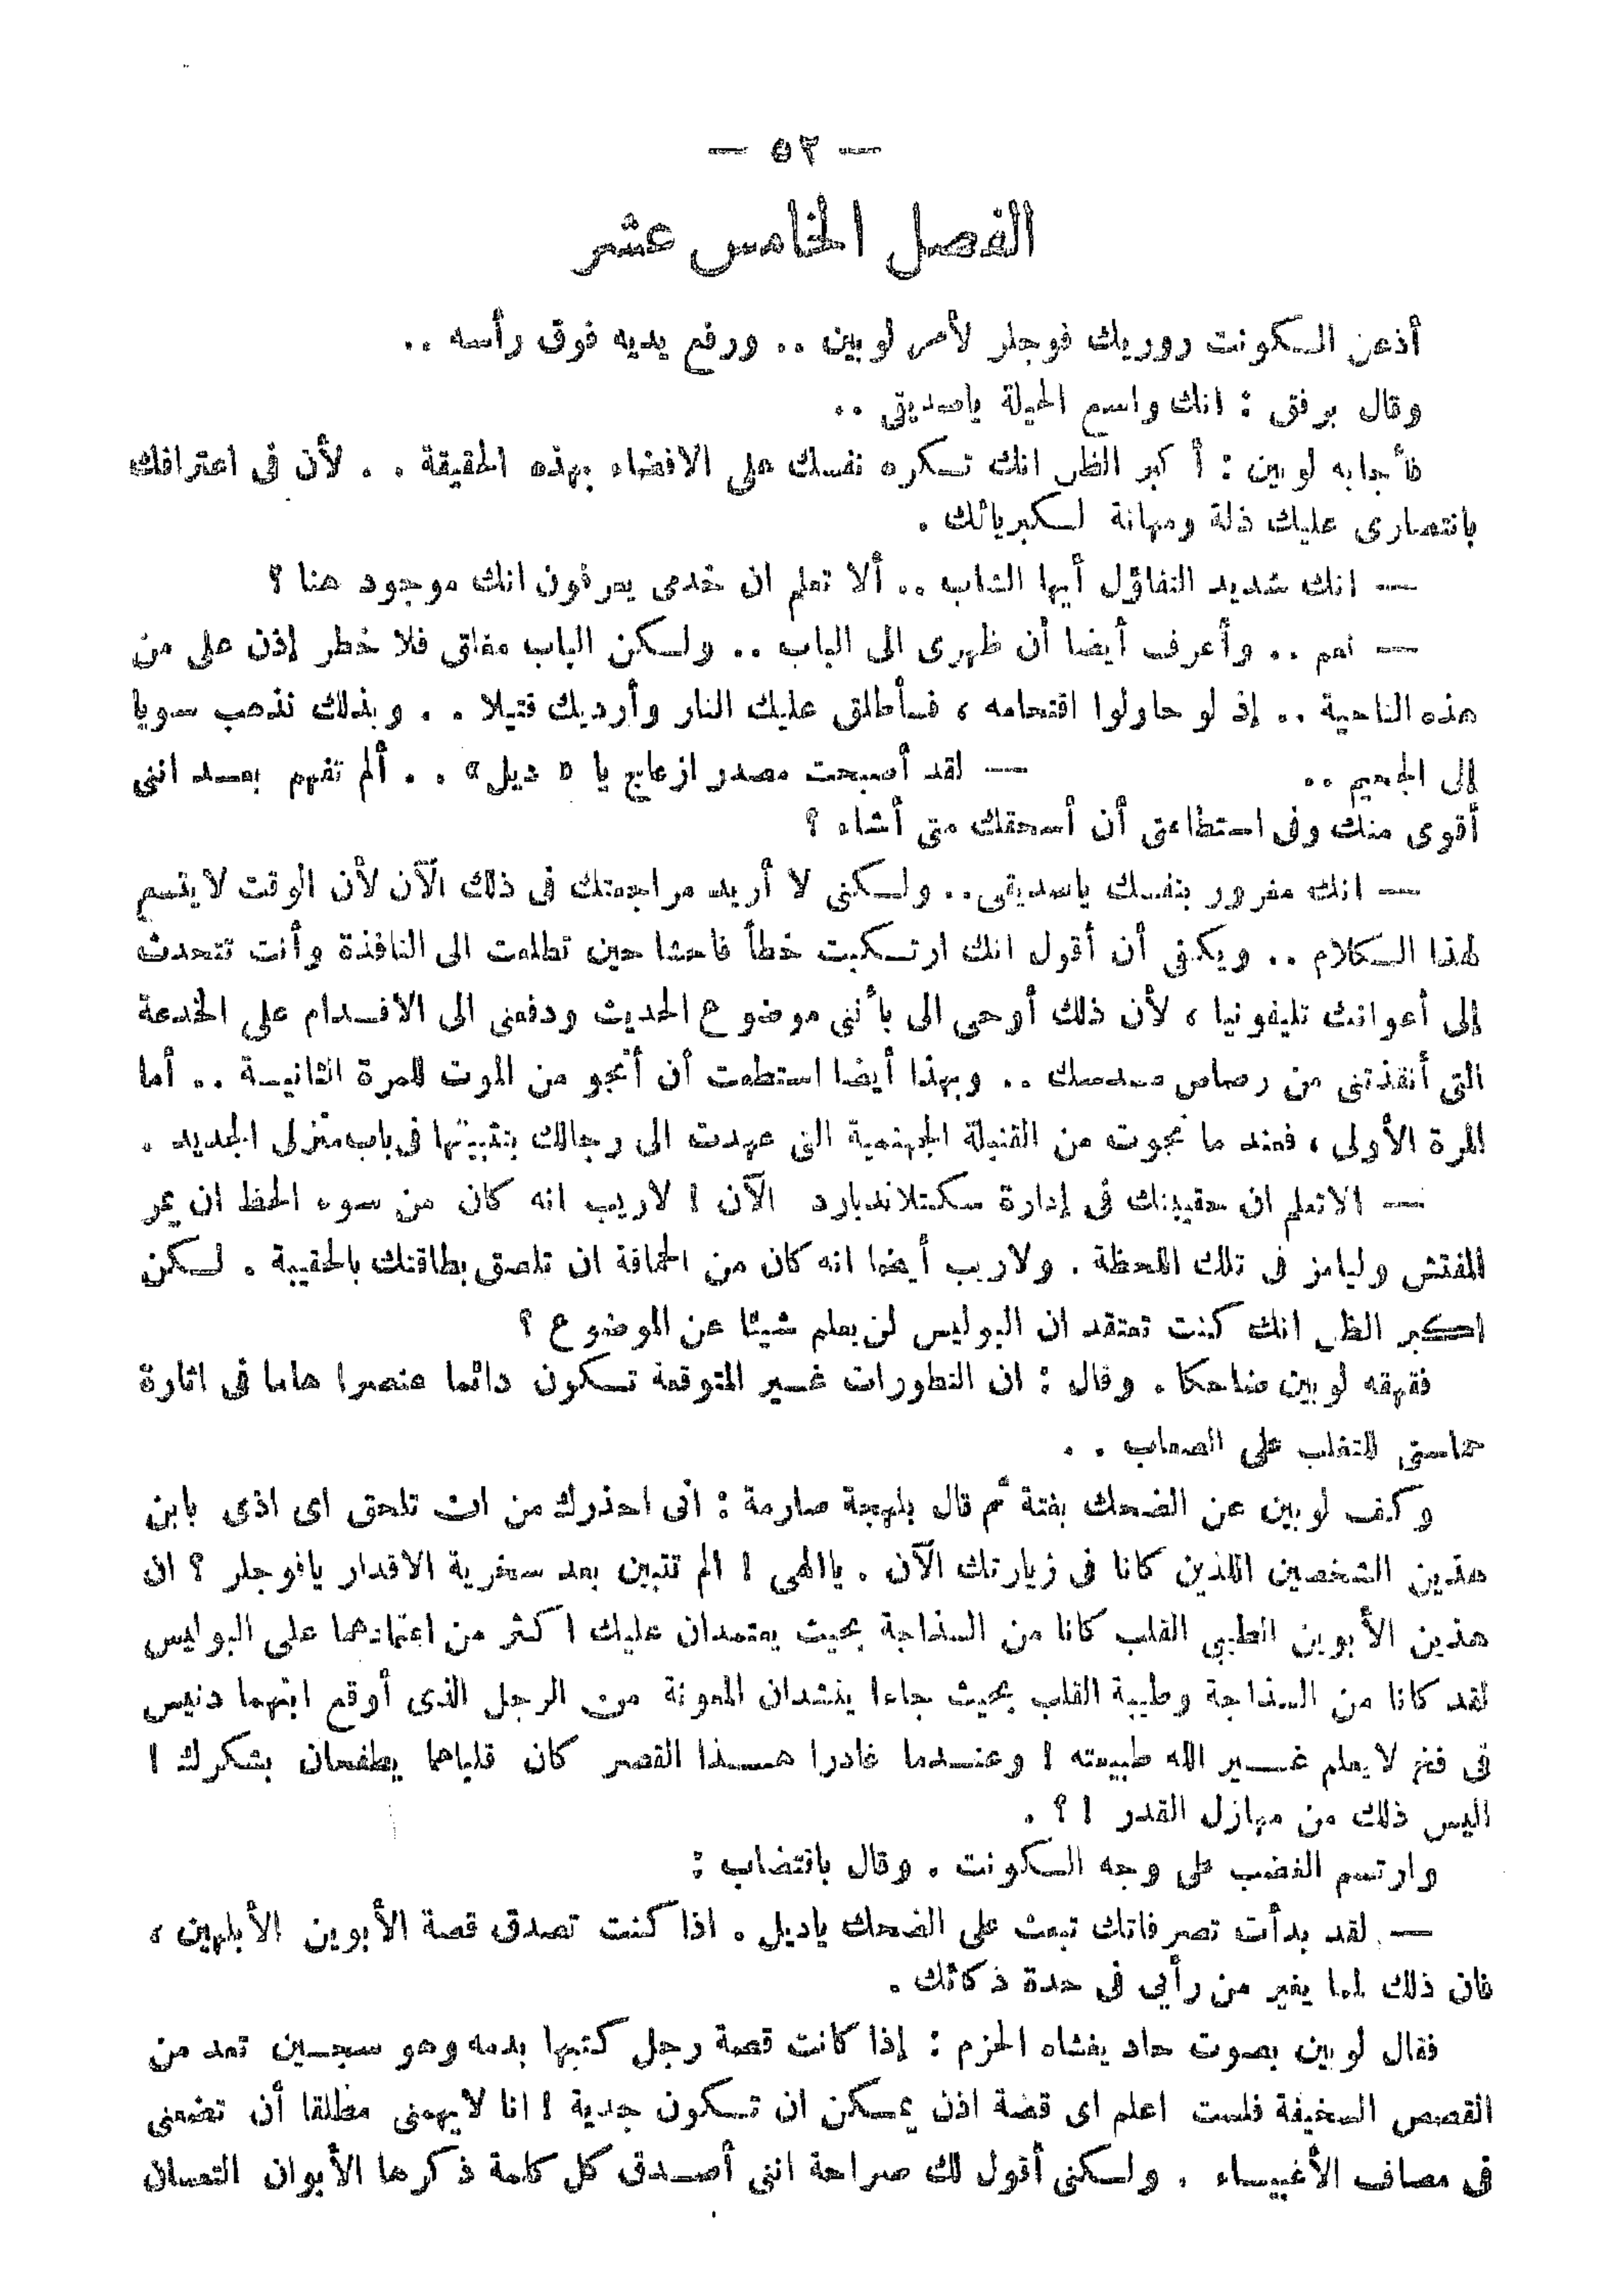 — ٥٢ —
الفصل الخامس عشر
أذعن الكونت روريك فوجلر لأمر لوبين .. ورفع يديه فوق رأسه ..
وقال برفق : انك واسع الحيلة ياصديقى ..
فأجابه لوبين : أكبر الظن انك تكره نفسك على الافضاء بهذه الحقيقة . . لأن فى اعترافك
بانتصارى عليك ذلة ومهانة لكبريائك .
— انك شديد التفاؤل أيها الشاب .. ألا تعلم ان خدمى يعرفون انك موجود هنا ؟
— نعم .. وأعرف أيضا أن ظهرى الى الباب .. ولكن الباب مغلق فلا خطر إذن على من
هذه الناحية .. إذ لو حاولوا اقتحامه ، فسأطلق عليك النار وأرديك قتيلا . . وبذلك نذهب سويا
إلى الجحيم .. — لقد أصبحت مصدر ازعاج يا « ديل » . . ألم تفهم بعد اننى
أقوى منك وفى استطاعتى أن أسحقك متى أشاء ؟
— انك مغرور بنفسك ياصديقى .. ولكنى لا أريد مراجعتك فى ذلك الآن لأن الوقت لا يتسع
لهذا الكلام .. ويكفى أن أقول انك ارتكبت خطأ فاحشا حين تطلعت الى النافذة وأنت تتحدث
إلى أعوانك تليفونيا ، لأن ذلك أوحى الى بأننى موضوع الحديث ودفعنى الى الاقدام على الخدعة
التى أنقذتنى من رصاص مسدسك .. وبهذا أيضا استطعت أن أنجو من الموت للمرة الثانية .. أما
المرة الأولى ، فعند ما نجوت من القنبلة الجهنمية التى عهدت الى رجالك بتثبيتها فى باب منزلى الجديد .
— الا تعلم ان حقيبتك فى إدارة سكتلانديارد الآن ! لاريب انه كان من سوء الحظ ان يمر
المفتش وليامز فى تلك اللحظة . ولاريب أيضا انه كان من الحماقة ان تلصق بطاقتك بالحقيبة . لكن
اكبر الظن انك كنت تعتقد ان البوليس لن يعلم شيئا عن الموضوع ؟
فقهقه لوبين ضاحكا . وقال : ان التطورات غير المتوقعة تكون دائما عنصرا هاما فى اثارة
حماستى للتغلب على الصعاب . .
وكف لوبين عن الضحك بغتة ثم قال بلهجة صارمة : انى احذرك من ان تلحق اى اذى بابن
هذين الشخصين اللذين كانا فى زيارتك الآن . ياالهى ! الم تتبين بعد سخرية الاقدار يافوجلر ؟ ان
هذين الأبوين الطيبى القلب كانا من السذاجة بحيث يعتمدان عليك اكثر من اعتمادهما على البوليس
لقد كانا من السذاجة وطيبة القلب بحيث جاءا ينشدان المعونة من الرجل الذى أوقع ابنهما دنيس
فى فخ لا يعلم غير الله طبيعته ! وعندما غادرا هذا القصر كان قلباهما يطفحان بشكرك !
اليس ذلك من مهازل القدر ! ؟ .
وارتسم الغضب على وجه الكونت . وقال باقتضاب :
— لقد بدأت تصرفاتك تبعث على الضحك ياديل . اذا كنت تصدق قصة الأبوين الأبلهين ،
فان ذلك لما يغير من رأيى فى حدة ذكائك .
فقال لوبين بصوت حاد يغشاه الحزم : إذا كانت قصة رجل كتبها بدمه وهو سجين تعد من
القصص السخيفة فلست اعلم اى قصة اذن يمكن ان تكون جدية ! انا لا يهمنى مطلقا أن تضعنى
فى مصاف الأغبياء . ولكنى أقول لك صراحة اننى أصدق كل كلمة ذكرها الأبوان التعسان